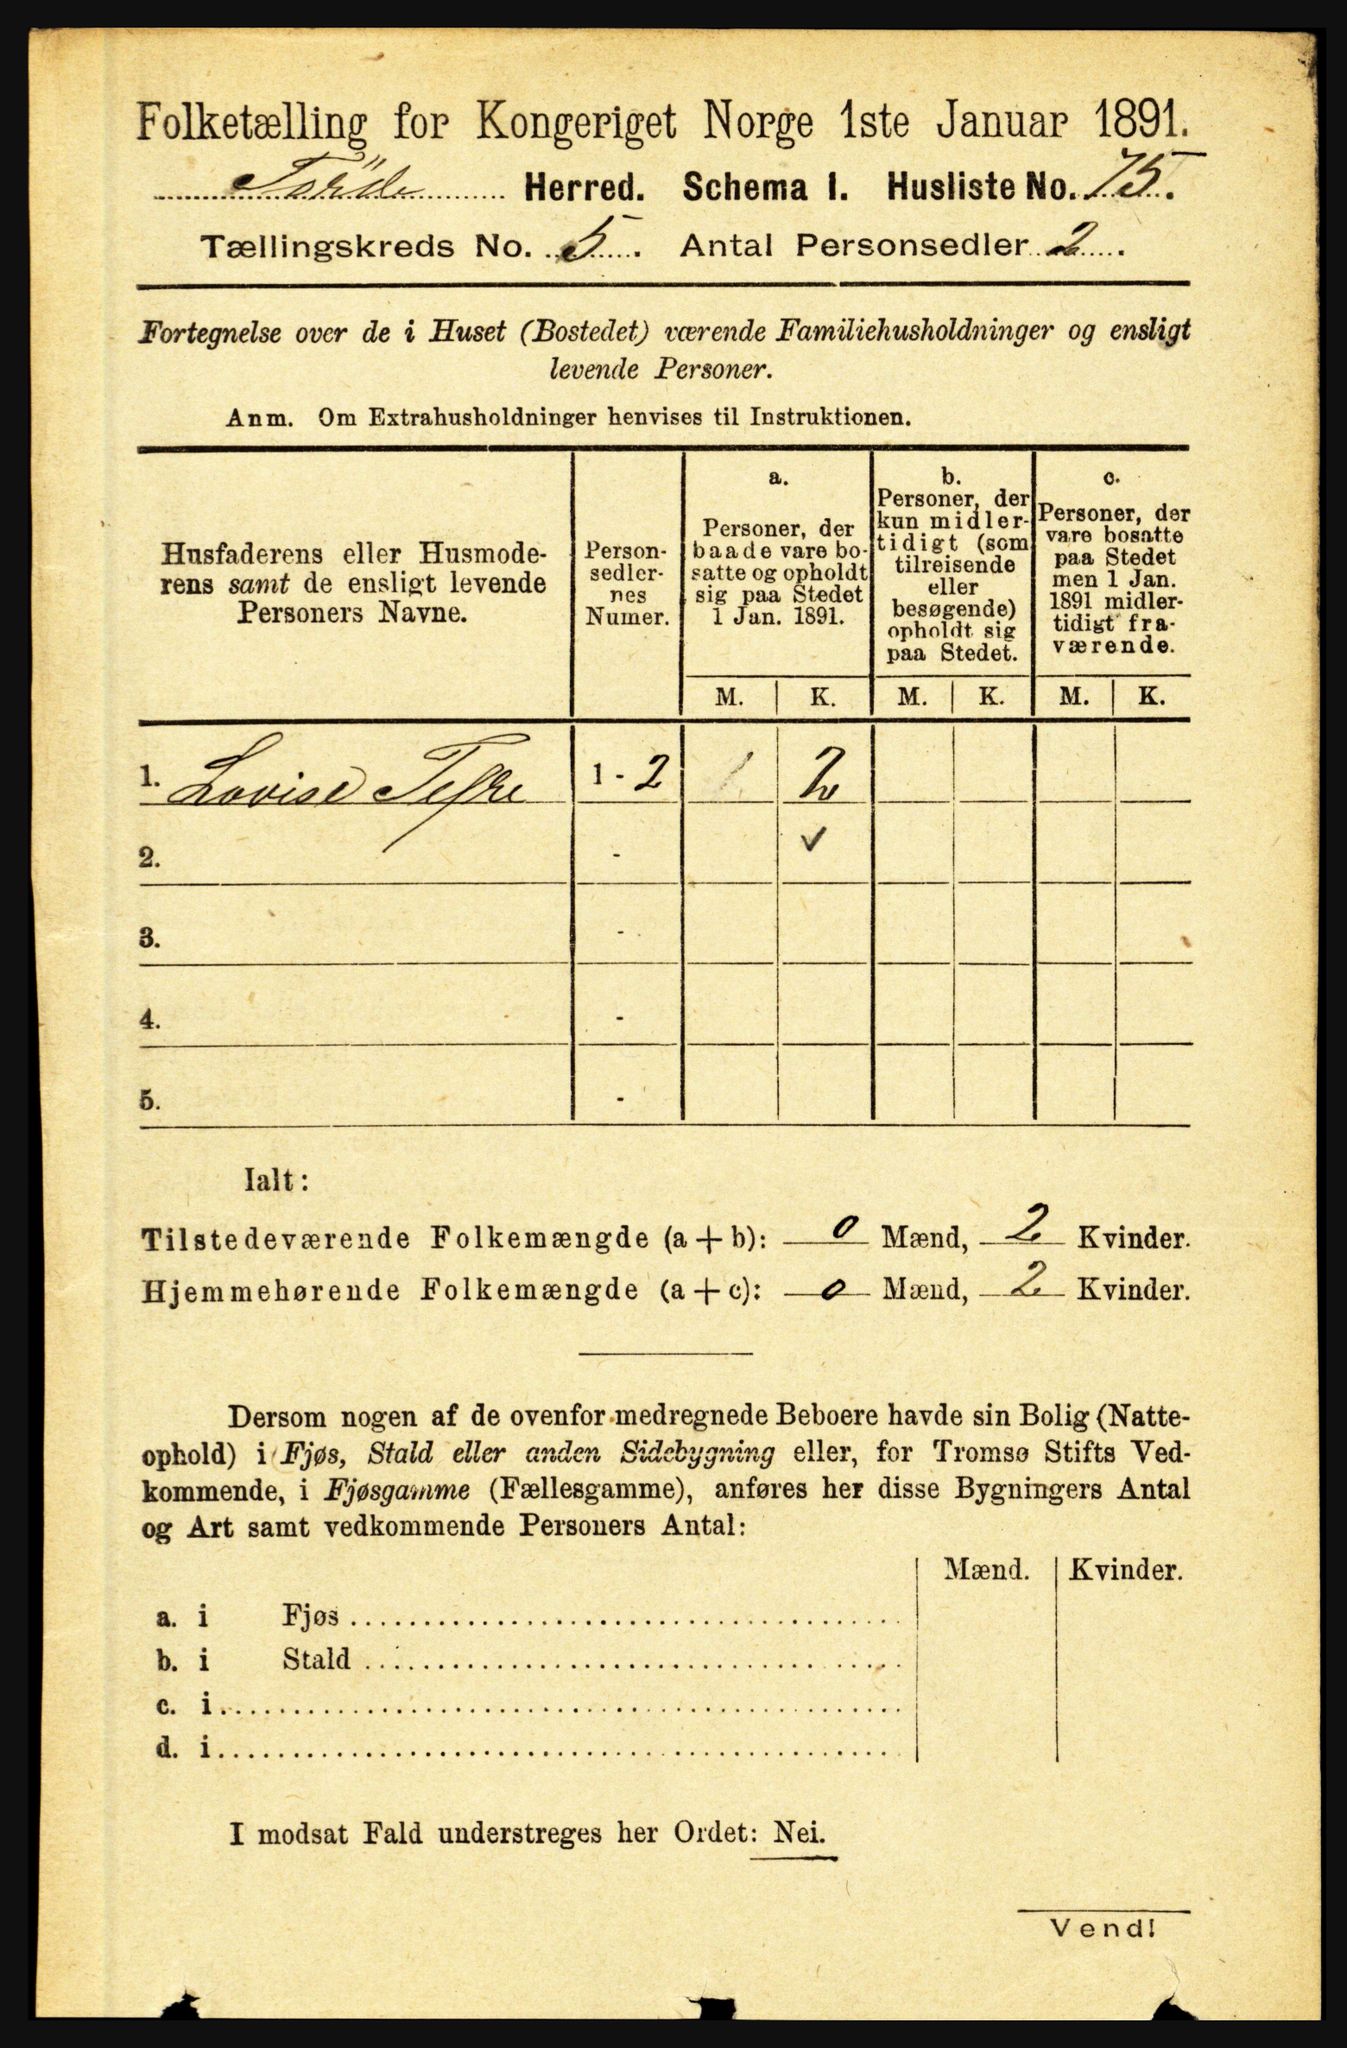 Folketælling for Kongeriget Norge 1ste Januar 1891.
Förde Herred. Schema 1. Husliste No. 75.
Tællingskreds No. 5. Antal Personsedler 2.
Fortegnelse over de i Huset (Bostedet) værende Familiehusholdninger og ensligt
levende Personer.
Anm. Om Extrahusholdninger henvises til Instruktionen.
Husfaderens eller Husmode-
rens samt de ensligt levende
Personers Navne.
Person-
sedler-
nes
Numer.
a.
Personer, der
baade vare bo-
satte og opholdt
sig paa Stedet
1 Jan. 1891.
b.
Personer, der
kun midler-
tidigt (som
tilreisende
eller
besøgende)
opholdt sig
paa Stedet.
c.
Personer, der
vare bosatte
paa Stedet
men 1 Jan.
1891 midler-
tidigt fra-
værende.
M. K. M. K. M. K.
1. Lovise 1 - 2 1 2
2. - ✓
3. -
4. -
5. -
Ialt:
Tilstedeværende Folkemængde (a + b): 0 Mænd, 2 Kvinder.
Hjemmehørende Folkemængde (a + c): 0 Mænd, 2 Kvinder.
Dersom nogen af de ovenfor medregnede Beboere havde sin Bolig (Natte-
ophold) i Fjøs, Stald eller anden Sidebygning eller, for Tromsø Stifts Ved-
kommende, i Fjøsgamme (Fællesgamme), anføres her disse Bygningers Antal
og Art samt vedkommende Personers Antal:
Mænd. Kvinder.
a. i Fjøs
b. i Stald
c. i
d. i
I modsat Fald understreges her Ordet: Nei.
Vend!